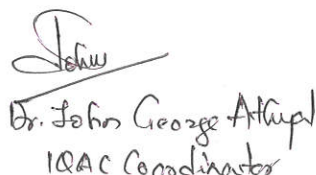 John
Dr. John George Athupl
IQAC Coordinator